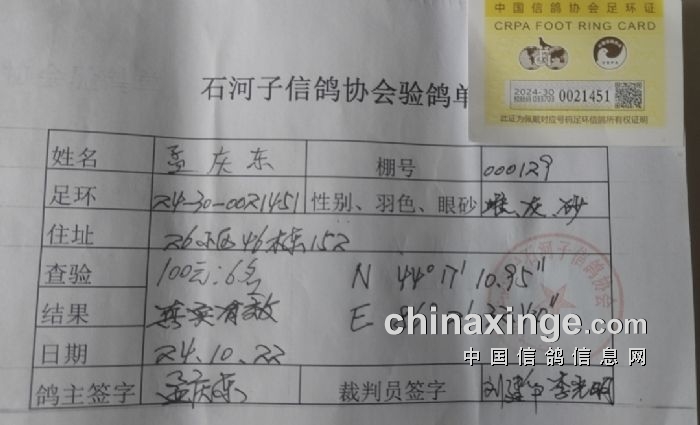 中国信鸽协会足环证
CRPA FOOT RING CARD
2024-30 0021451
此证为佩戴对应号码足环信鸽所有权证明
石河子信鸽协会验鸽单
姓名 孟庆东 棚号 000129
足环 24-30-0021451 性别、羽色、眼砂 雌、灰、砂
住址 26小区46栋152
查验 100元:6名 N 44°17'10.95"
结果 真实有效 E 86°
日期 24.10.22
鸽主签字 孟庆东 裁判员签字 刘建华 李光明
石河子信鸽协会
chinaxinge.com
中国信鸽信息网